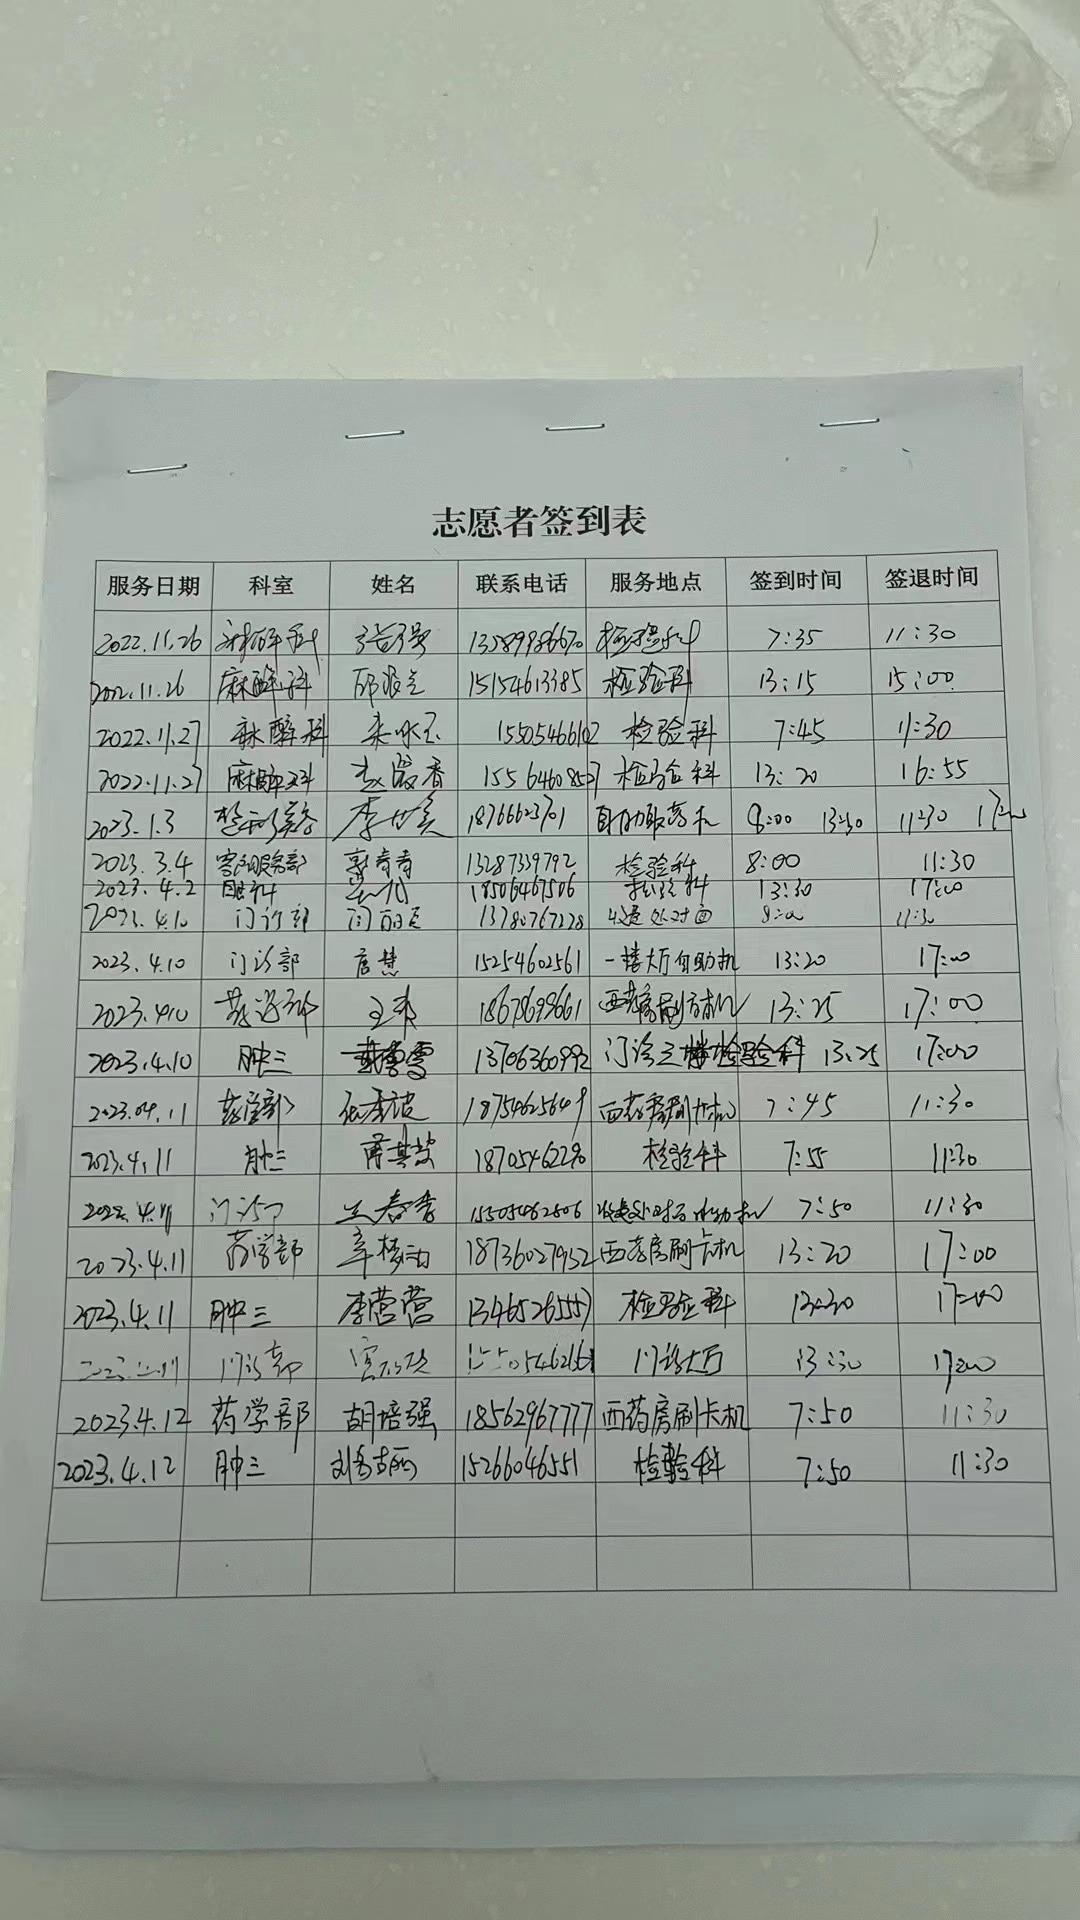 志愿者签到表
服务日期 科室 姓名 联系电话 服务地点 签到时间 签退时间
2022.11.26 麻醉科 张强 13589986670 检验科 7:35 11:30
2022.11.26 麻醉科 15154613385 检验科 13:15 15:00
2022.11.27 麻醉科 15505466102 检验科 7:45 11:30
2022.11.27 麻醉科 赵霞香 15564608527 检验科 13:20 16:55
2023.1.3 李 18766623701 自助取药机 8:00 13:30 11:30 17:00
2023.3.4 客户服务部 郭青青 13287339792 检验科 8:00 11:30
2023.4.2 眼科 18506467506 检验科 13:30 17:00
2023.4.10 门诊部 13780767228 收费处对面 8:00 11:30
2023.4.10 门诊部 唐慧 15254602561 一楼大厅自助机 13:20 17:00
2023.4.10 药学部 18678698661 西药房刷卡机 13:25 17:00
2023.4.10 肿三 13706360992 门诊 检验科 13:25 17:00
2023.04.11 药学部 18754625649 西药房刷卡机 7:45 11:30
2023.4.11 肿三 18705462290 检验科 7:55 11:30
4.11 门诊 15505462506 收费处对面 7:50 11:30
2023.4.11 药学部 18736027952 西药房刷卡机 13:20 17:00
2023.4.11 肿三 李营营 13465265557 检验科 13:30 17:00
门诊部 门诊大厅 13:30 17:00
2023.4.12 药学部 胡培强 18562967777 西药房刷卡机 7:50 11:30
2023.4.12 肿三 刘 15266046551 检验科 7:50 11:30